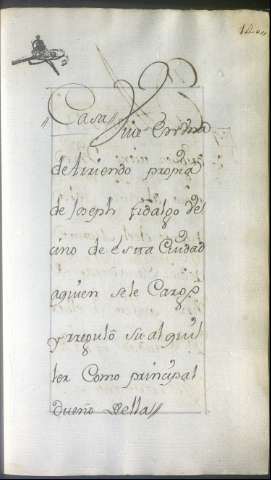 14
Casa
de viviendo propia
de Joseph fidalgo Ve
cino de esta Ciudad
aquien sele Cargó
y rreguló su alquil
ler Como principal
dueño della //